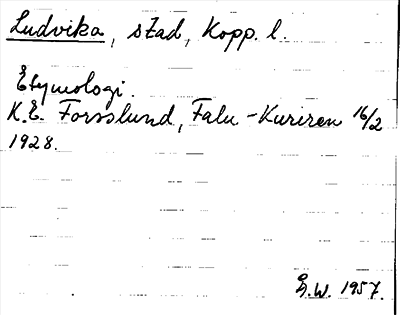 Ludvika, stad, Kopp. l.
Etymologi.
K.E. Forsslund, Falu-Kuriren 16/2
1928.
Å.W. 1957.